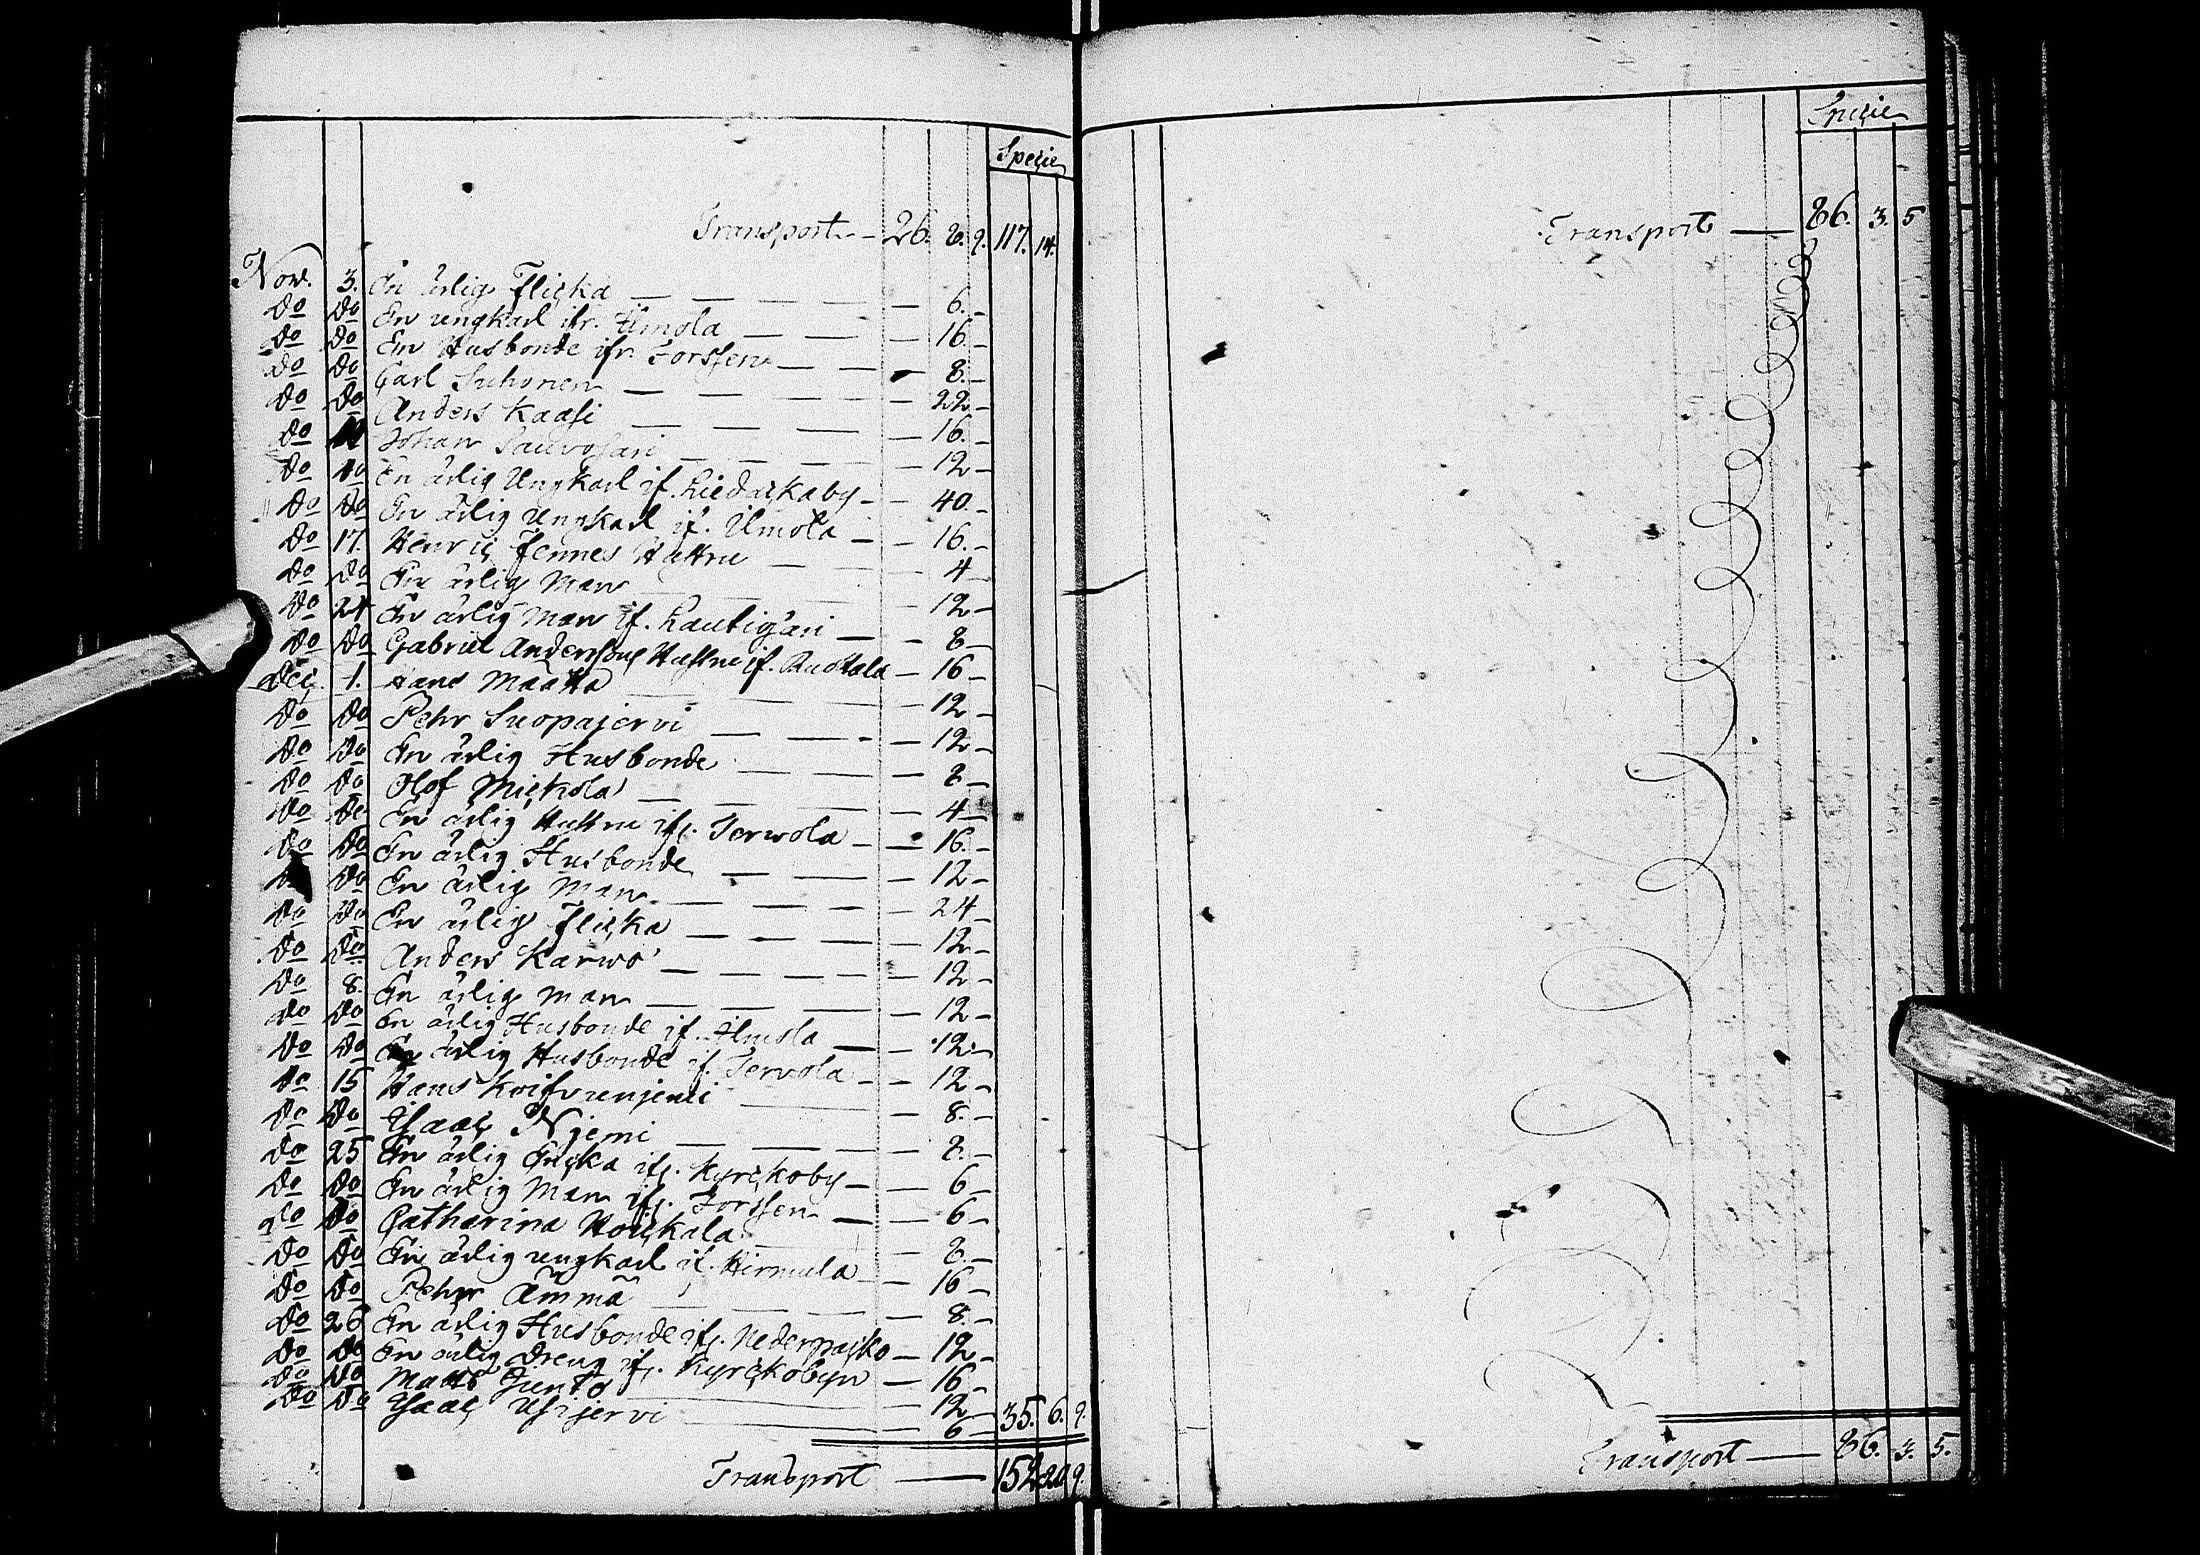 Specie
Transport — 26. 8. 9. 117. 14.
Nov. 3. En ärlig Flicka — 6. –
Do Do En ungkarl ifr. Ilmola — 16. –
Do Do En Husbonde ifr. Forssen — 8. –
Do Do Carl Suhonen — 22 –
Do Do Anders Kaasi — 16. –
Do Johan Sauvosari — 12 –
Do 10 En ärlig Ungkarl if. Liedackaby — 40. –
Do Do En ärlig Ungkarl if. Ilmola — 16. –
Do 17. Henric Jennes Hustru — 4 –
Do Do En ärlig Man — 12 –
Do 24 En ärlig Man if. Lautiosari — 8 –
Do Do Gabriel Anderssons Hustru if. Ruottala — 16 –
Dec. 1. Hans Maatta — 12 –
Do Do Pehr Suopajervi — 12 –
Do Do En ärlig Husbonde — 8 –
Do Do Olof Mickola — 4 –
Do Do En ärlig Hustru ifr. Terwola — 16. –
Do Do En ärlig Husbonde — 12 –
Do Do En ärlig Man — 24 –
Do Do En ärlig Flicka — 12 –
Do Do Anders Karwo — 12 –
Do 8. En ärlig Man — 12 –
Do Do En ärlig Husbonde if. Ilmola — 12 –
Do Do En ärlig Husbonde if. Tervola — 12 –
Do 15 Hans — 8. –
Do Do Isaac Niemi — 8. –
Do 25 En ärlig Encka ifr. Kyrckoby — 6 –
Do Do En ärlig Man ifr. Forssen — 6 –
Do Do Catharina Houckala — 8. –
Do Do En ärlig ungkarl if. Hirmula — 16 –
Do Do Pehr Ämmä — 8. –
Do 26 En ärlig Husbonde ifr. Nederpacko — 12 –
Do Do En ärlig Dreng ifr. Kyrckobyn — 16 –
Do Do Matts Junto — 12 –
Do Do Isaac Ylijervi — 6 – 35. 6. 9.
Transport — 152 20 9.
Specie
Transport — 86. 3. 5
Transport — 86. 3. 5.